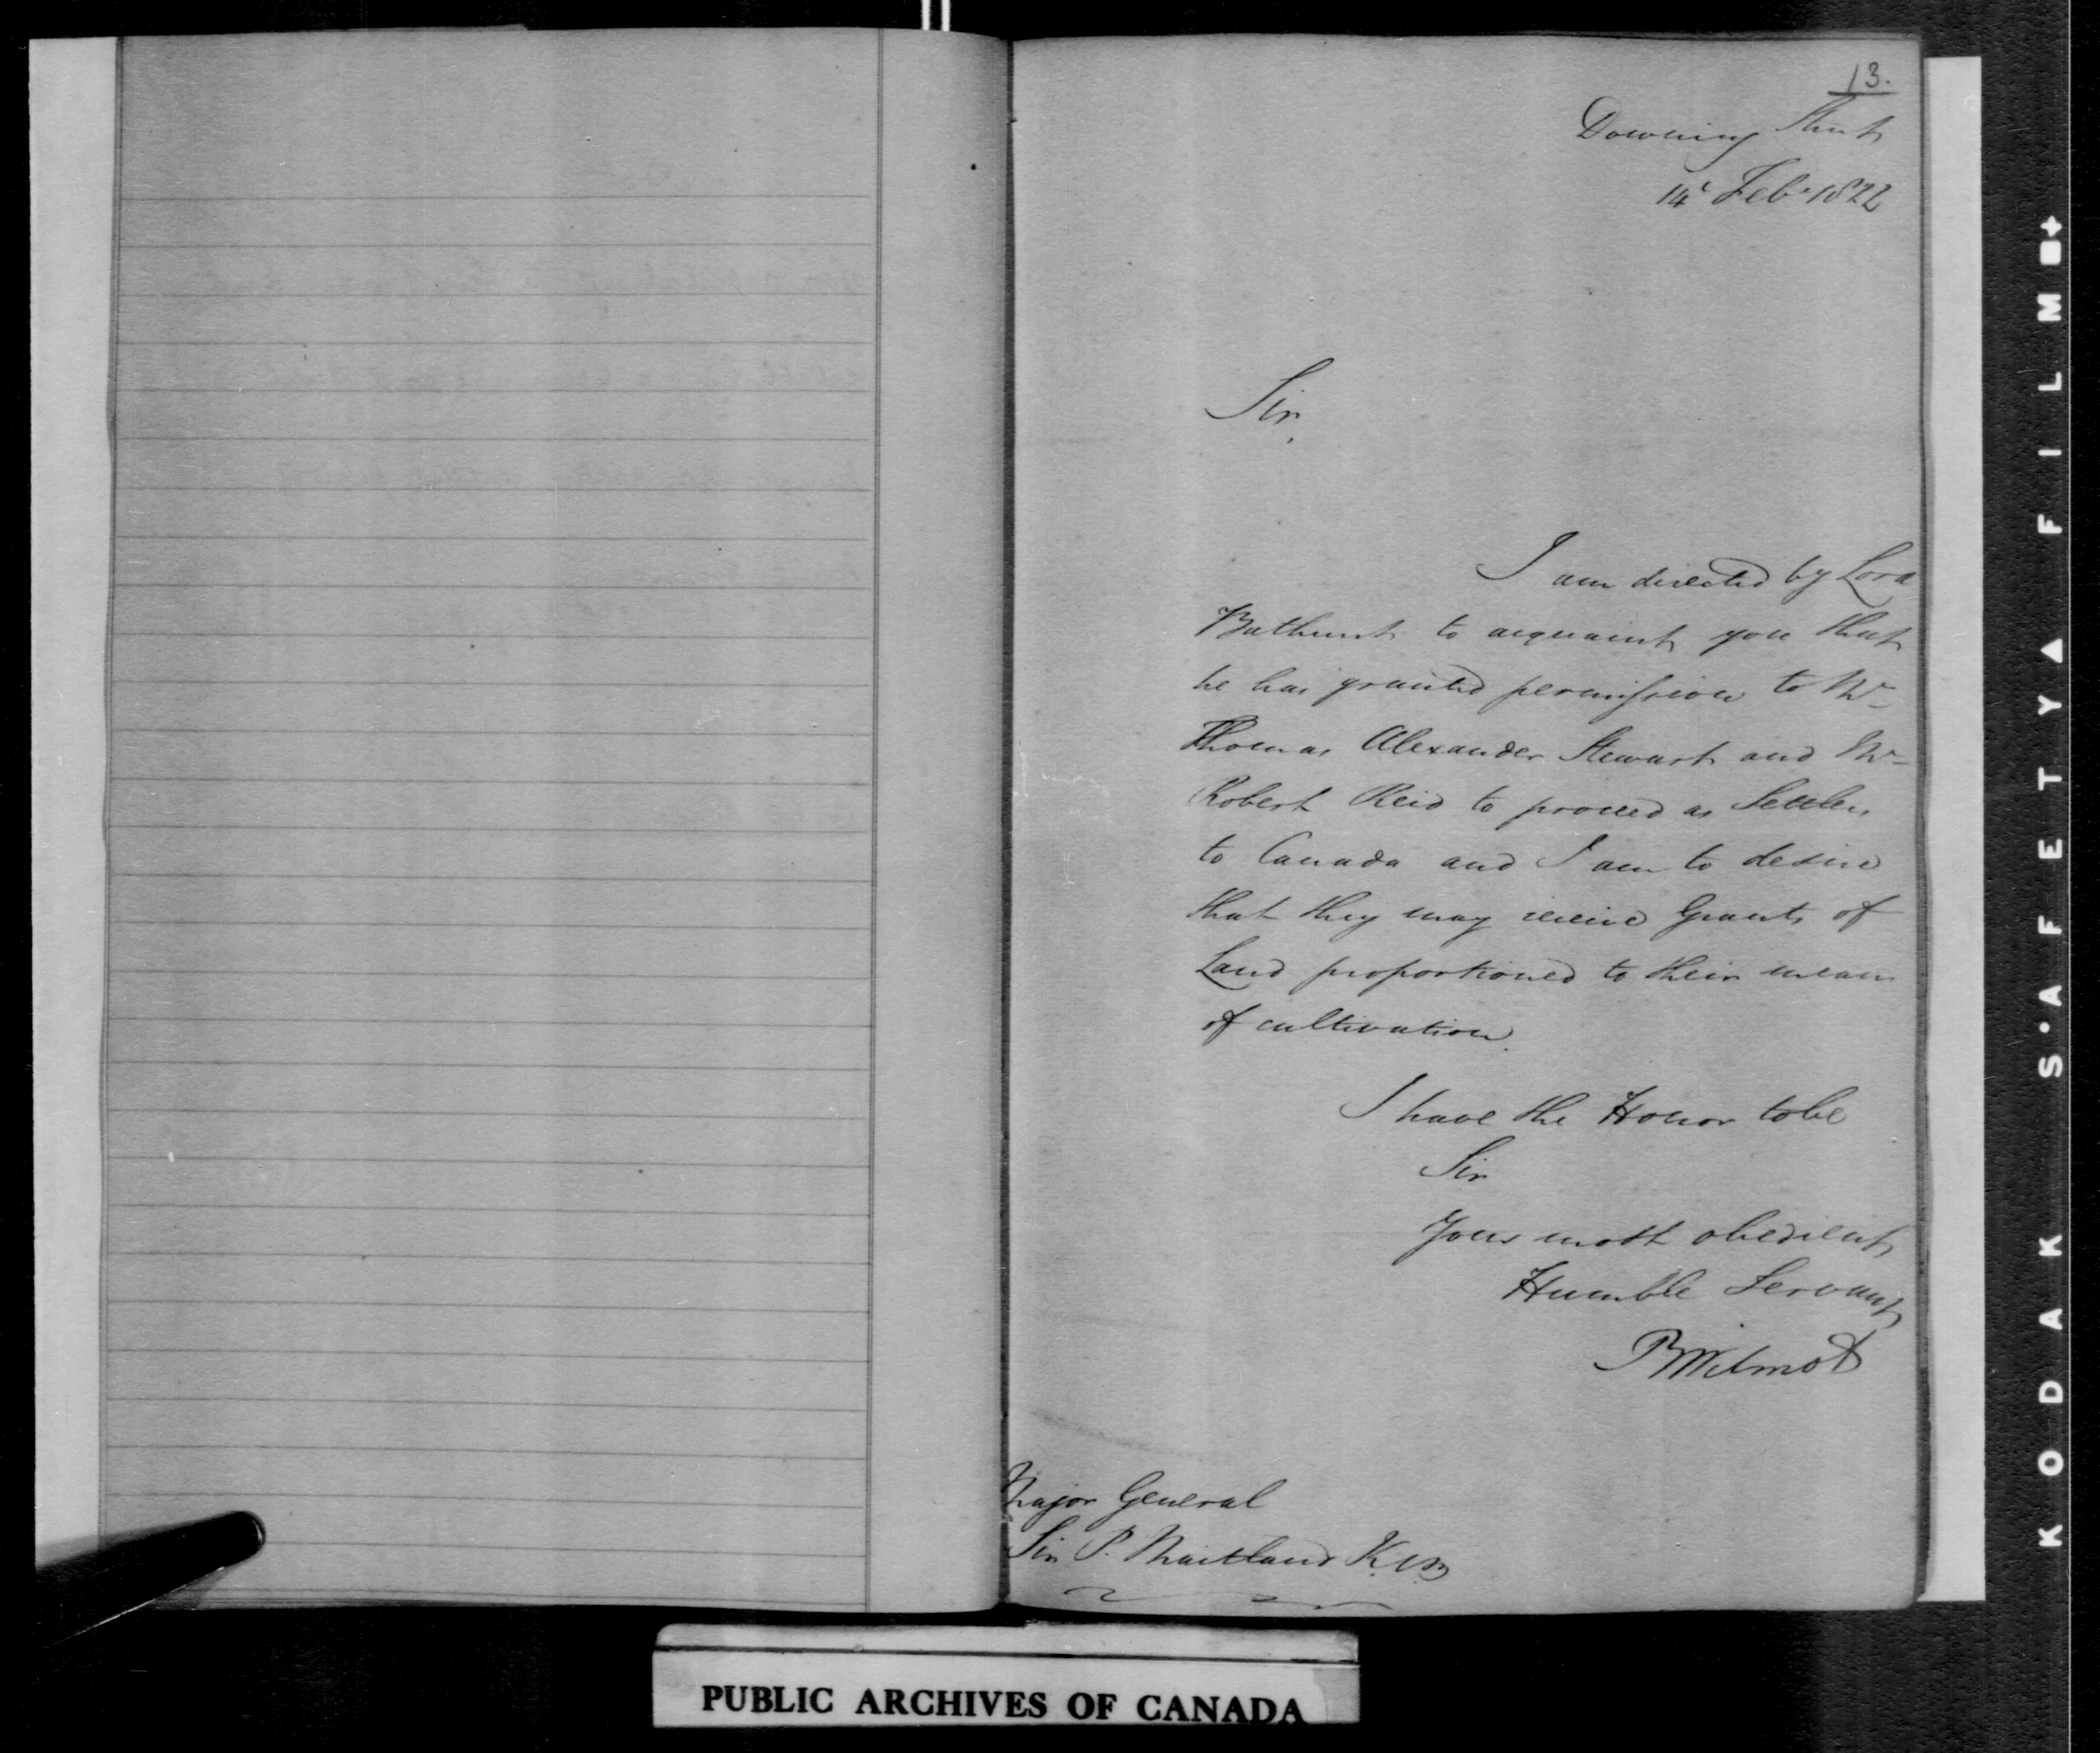 13.
Downing Street
14t Feb. 1822
Sir,
I am directed by Lord
Bathurst to acquaint you that
he has granted permission to Mr
Thomas Alexander Stewart and Mr
Robert Reid to proceed as Settlers
to Canada and I am to desire
that they may receive Grants of
Land proportioned to their means
of cultivation.
I have the Honor to be
Sir
Your most obedient
Humble Servant
RWilmot
Major General
Sir P. Maitland K.C.B
PUBLIC ARCHIVES OF CANADA
KODAK S•AFETY▲FILM■+